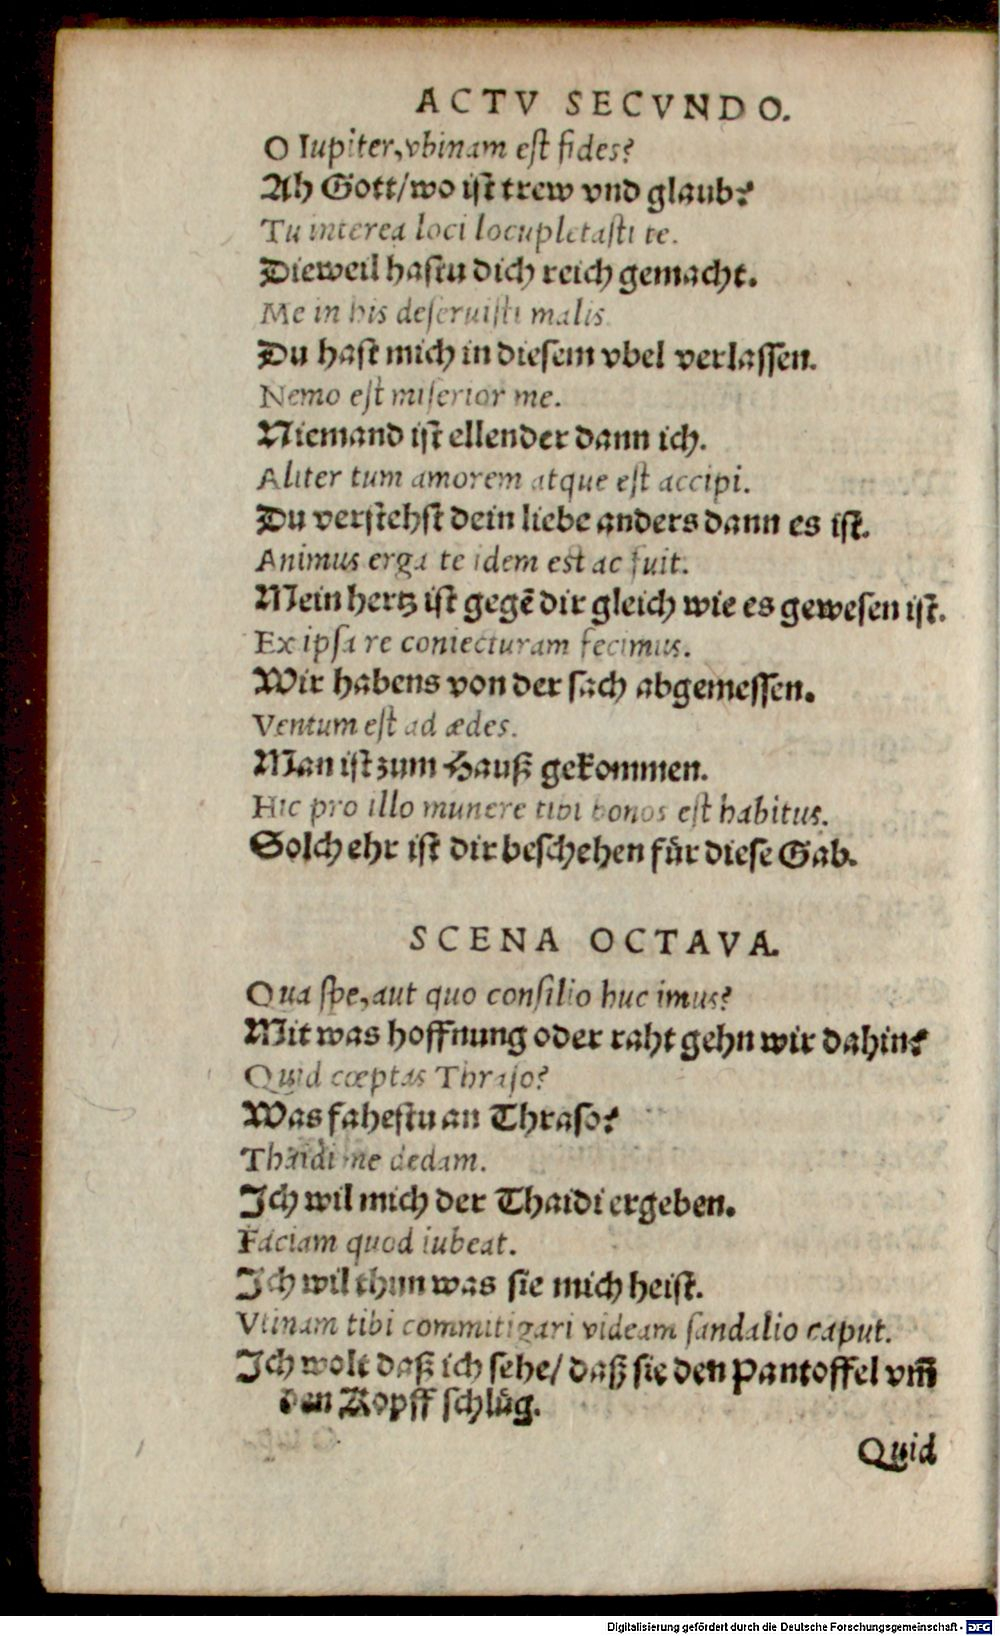 ACTV SECVNDO.
O Iupiter, vbinam est fides?
Ah Gott/wo ist trew vnd glaub?
Tu interea loci locupletasti te.
Dieweil hastu dich reich gemacht.
Me in his deseruisti malis.
Du hast mich in diesem vbel verlassen.
Nemo est miserior me.
Niemand ist ellender dann ich.
Aliter tum amorem atque est accipi.
Du verstehst dein liebe anders dann es ist.
Animus erga te idem est ac fuit.
Mein hertz ist gegē dir gleich wie es gewesen ist.
Ex ipsa re coniecturam fecimus.
Wir habens von der sach abgemessen.
Ventum est ad ædes.
Man ist zum Hauß gekommen.
Hic pro illo munere tibi honos est habitus.
Solch ehr ist dir beschehen für diese Gab.
SCENA OCTAVA.
Qua spe, aut quo consilio huc imus?
Mit was hoffnung oder raht gehn wir dahin?
Quid cœptas Thraso?
Was fahestu an Thraso?
Thaidi me dedam.
Ich wil mich der Thaidi ergeben.
Faciam quod iubeat.
Ich wil thun was sie mich heist.
Vtinam tibi commitigari videam sandalio caput.
Ich wolt daß ich sehe/ daß sie den Pantoffel vm̄
den Kopff schlüg.
Quid
Digitalisierung gefördert durch die Deutsche Forschungsgemeinschaft - DFG